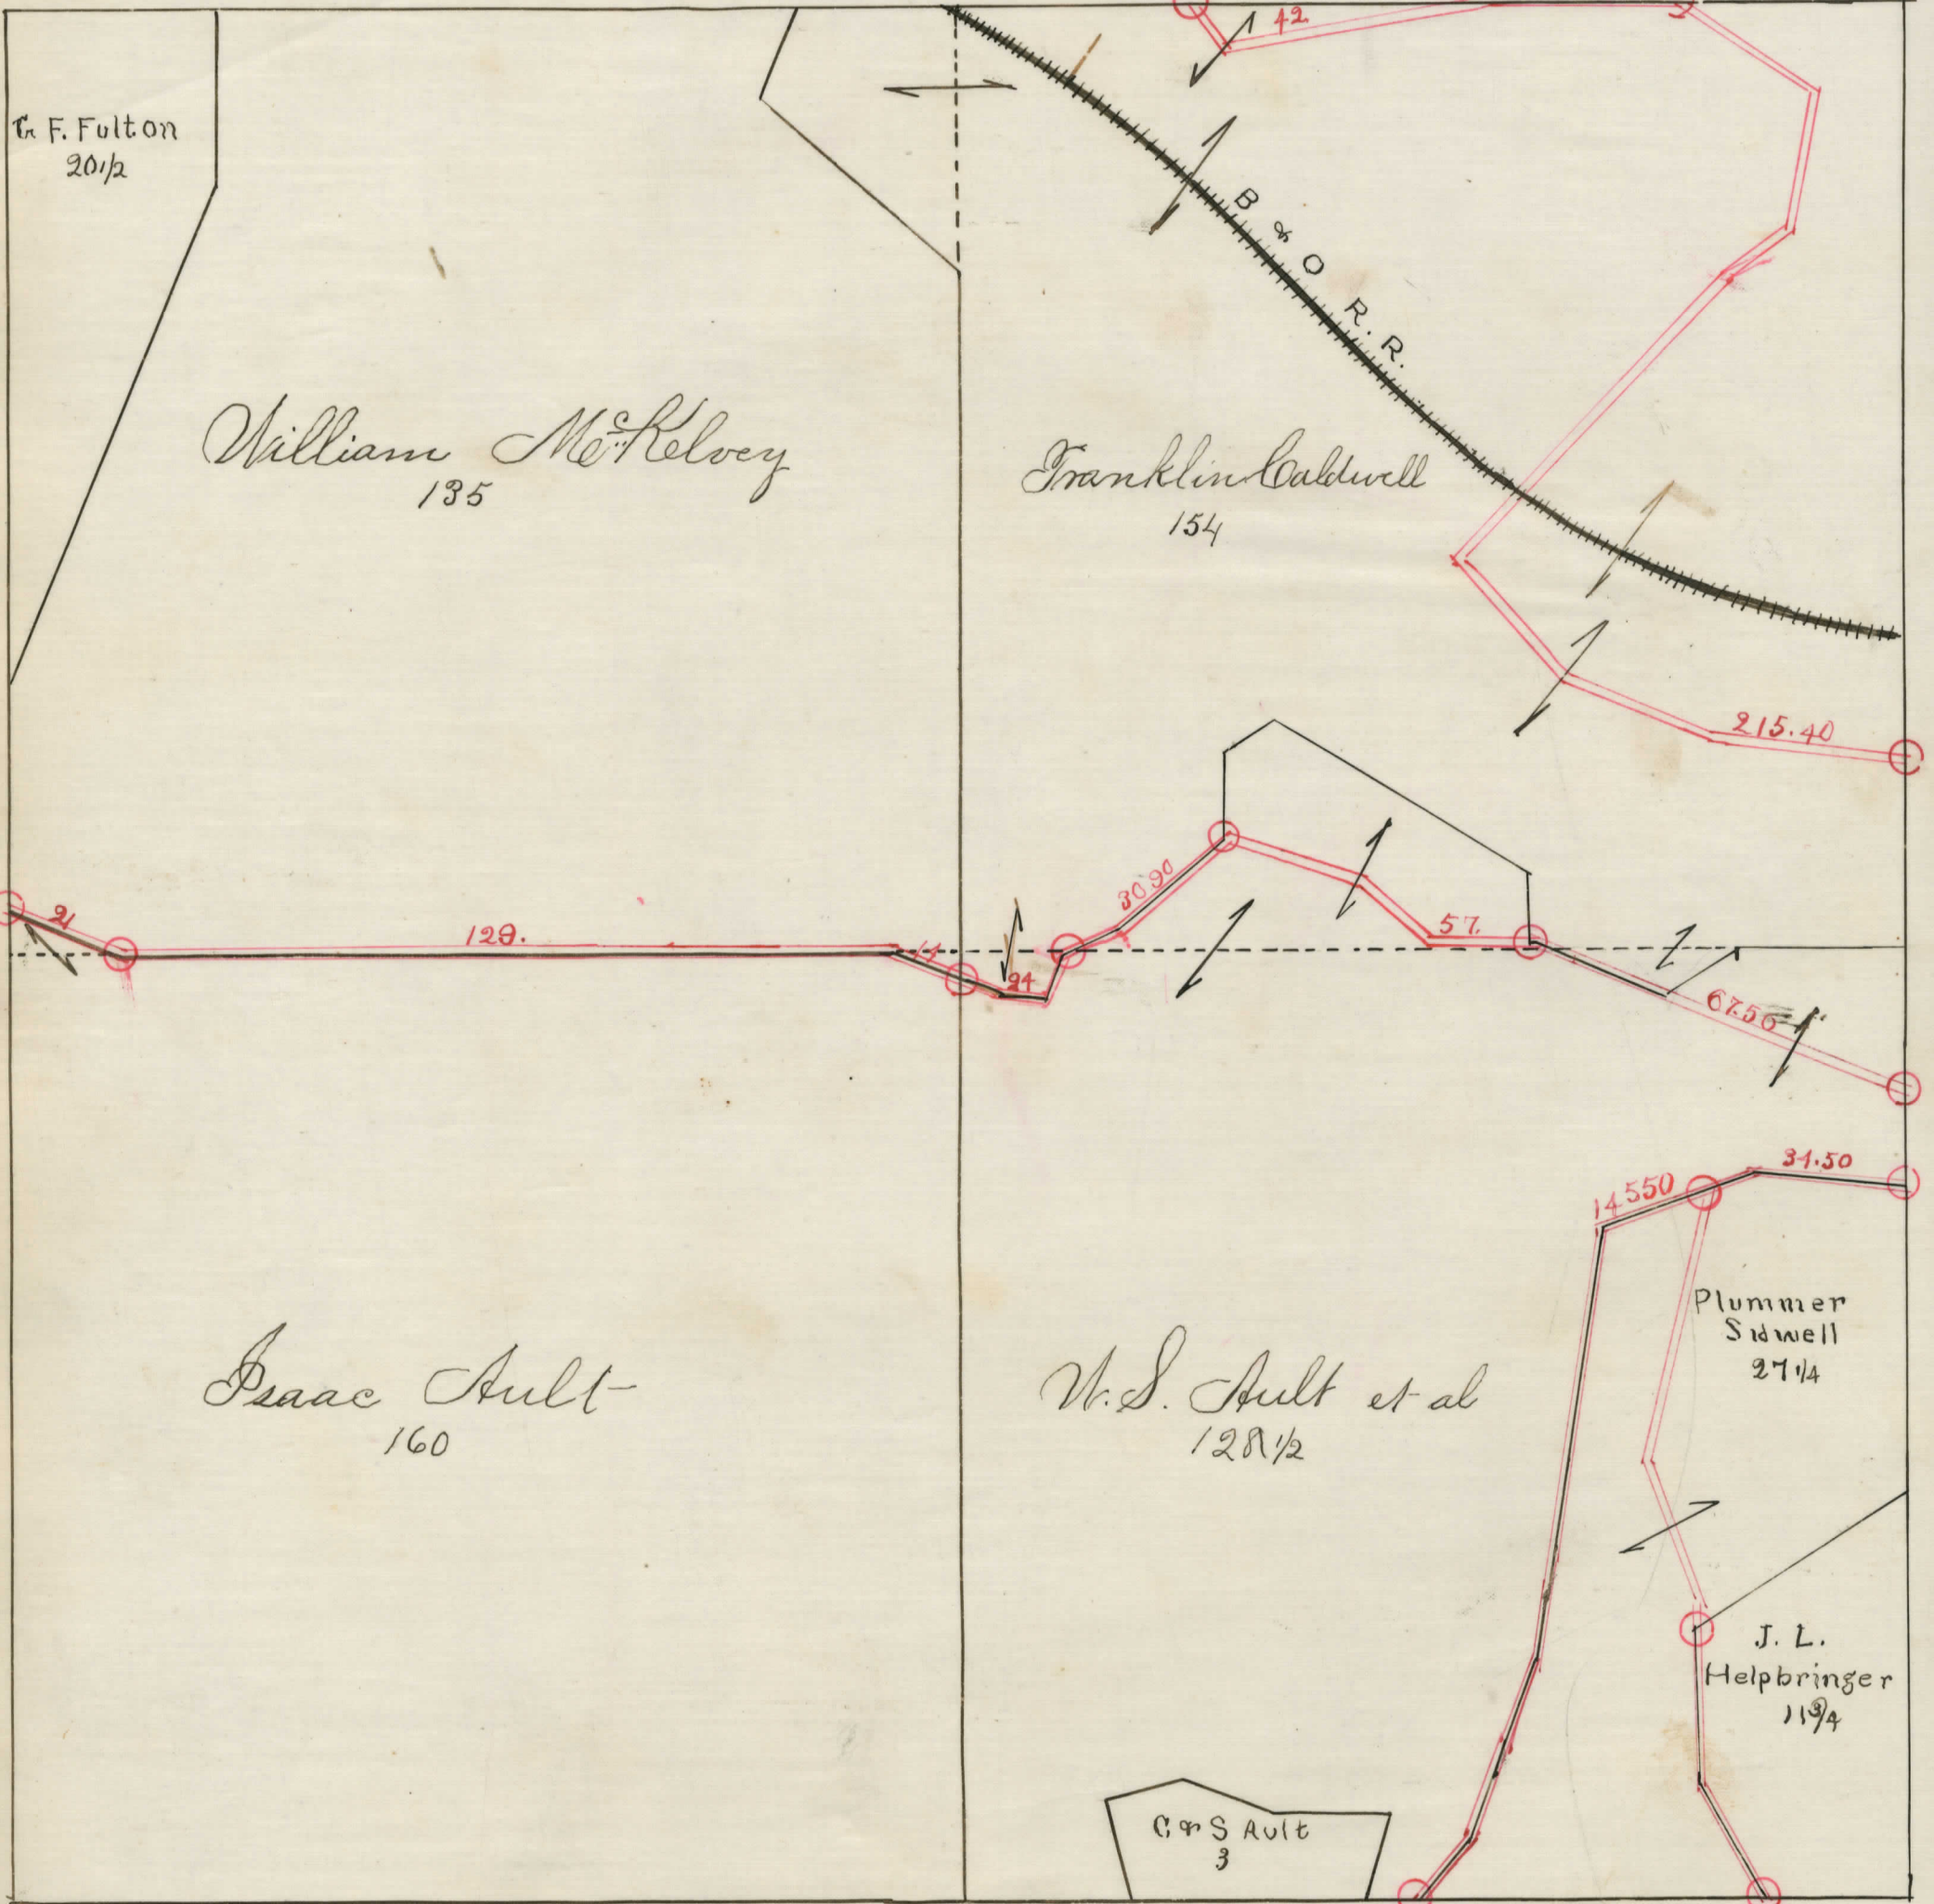 42.
G. F. Fulton
20 1/2
B & O R. R.
William McKelvey
135
Franklin Caldwell
154
215.40
30.90
57.
21
129.
14
24
67.50
31.50
14550
Plummer
Sidwell
27 1/4
Isaac Ault
160
W. S. Ault et al
128 1/2
J. L.
Helpbringer
11 3/4
C & S Ault
3